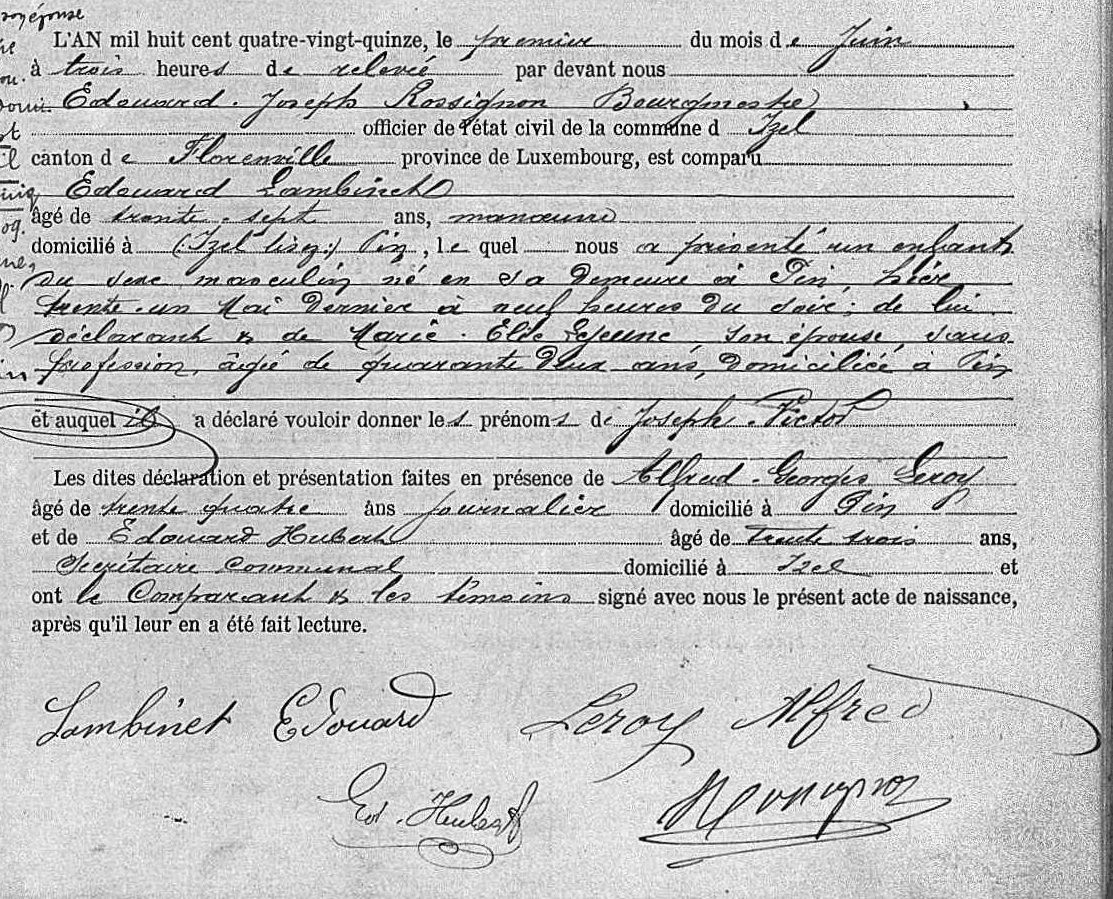 son épouse
L'AN mil huit cent quatre-vingt-quinze, le premier du mois de Juin
à trois heures de relevée par devant nous
Edouard Joseph Rossignon Bourgmestre
officier de l'état civil de la commune d Izel
canton de Florenville province de Luxembourg, est comparu
Edouard Lambinet
âgé de trente-sept ans, manoeuvre
domicilié à (Izel lisez:) Pin, lequel nous a présenté un enfant
du sexe masculin né en sa demeure à Pin, hier
trente-un Mai dernier à neuf heures du soir; de lui
déclarant & de Marie Elise Lejeune, son épouse, sans
profession, âgée de quarante deux ans, domiciliée à Pin
et auquel il a déclaré vouloir donner les prénoms de Joseph-Victor
Les dites déclaration et présentation faites en présence de Alfred-Georges Leroy
âgé de trente quatre ans journalier domicilié à Pin
et de Edouard Hubert âgé de trente trois ans,
Secrétaire Communal domicilié à Izel et
ont le Comparant & les témoins signé avec nous le présent acte de naissance,
après qu'il leur en a été fait lecture.
Lambinet Edouard Leroy Alfred
Ed. Hubert Rossignon